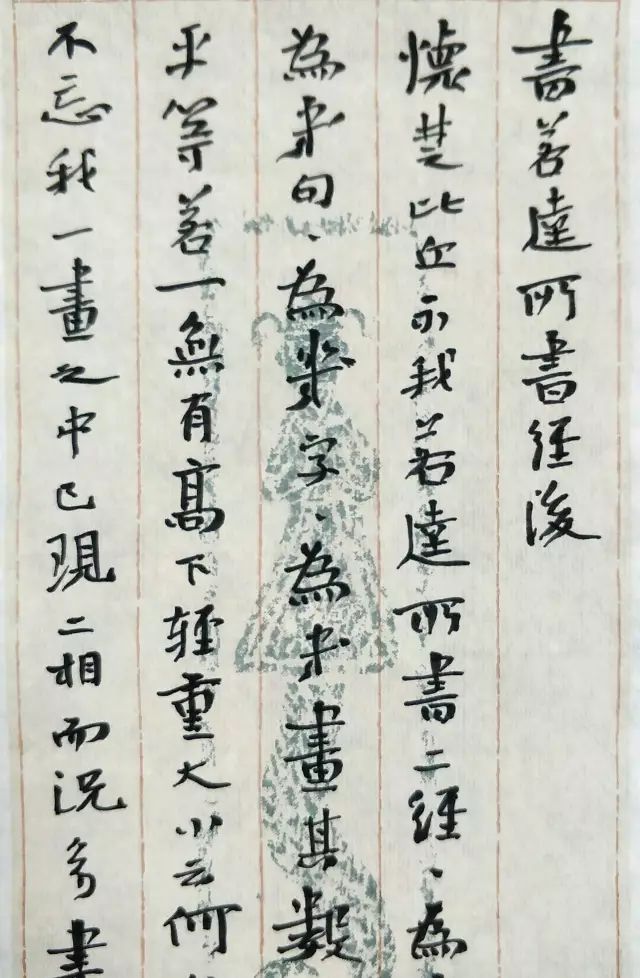 書若逵所書經後
懷楚比丘示我若逵所書二經、為
為幾句、為幾字、為幾畫其數
平等若一無有高下輕重大小云何
不忘我一畫之中已現二相而況多畫